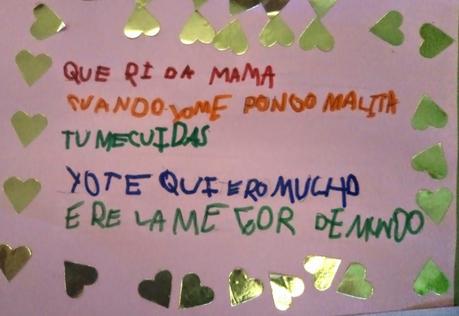 QUE RI DA MAMA
CUANDO YOME PONGO MALITA
TU MECUIDAS
YOTE QUIERO MUCHO
ERE LA ME GOR DE MUNDO